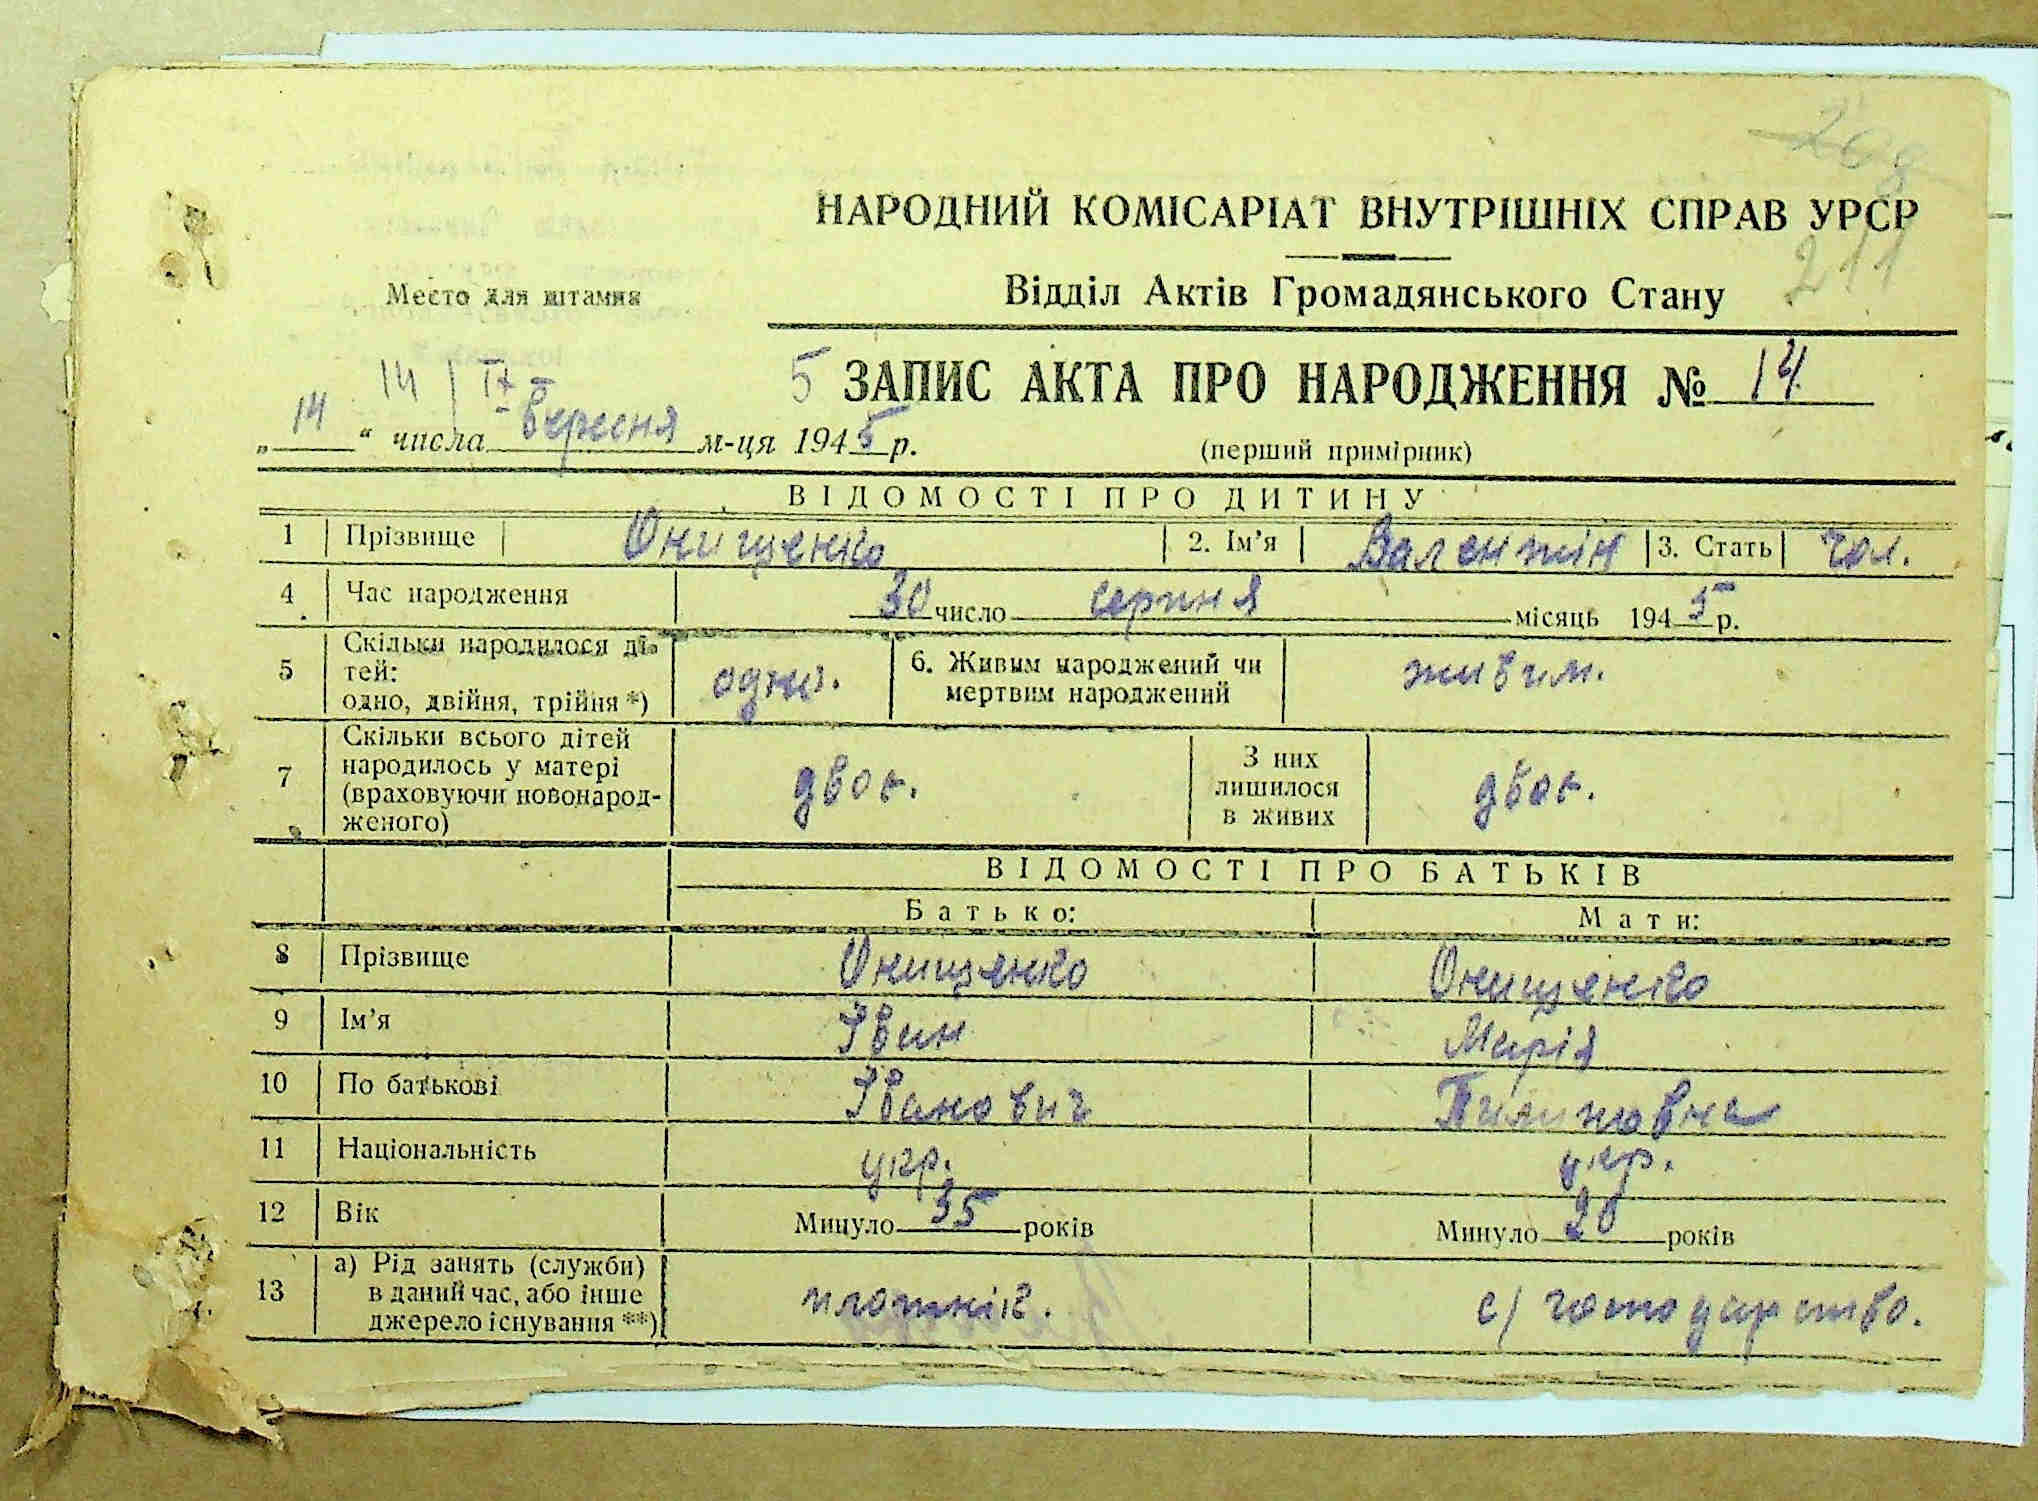 208
НАРОДНИЙ КОМІСАРІАТ ВНУТРІШНІХ СПРАВ УРСР
211
Место для штампа
Відділ Актів Громадянського Стану
14 | IX
5 ЗАПИС АКТА ПРО НАРОДЖЕННЯ № 14
„14“ числа вересня м-ця 1945 р.
(перший примірник)
ВІДОМОСТІ ПРО ДИТИНУ
1 Прізвище Онищенко 2. Ім'я Валентін 3. Стать чол.
4 Час народження 30 число серпня місяць 1945 р.
5 Скільки народилося ді-
тей:
одно, двійня, трійня *) одно.
6. Живим народжений чи
мертвим народжений живим.
7 Скільки всього дітей
народилось у матері
(враховуючи новонарод-
женого) двоє.
З них
лишилося
в живих двоє.
ВІДОМОСТІ ПРО БАТЬКІВ
Батько: Мати:
8 Прізвище Онищенко Онищенко
9 Ім'я Іван Марія
10 По батькові Іванович Пилиповна
11 Національність укр. укр.
12 Вік Минуло 35 років Минуло 20 років
13 а) Рід занять (служби)
в даний час, або інше
джерело існування **) плотнік. с/господарство.